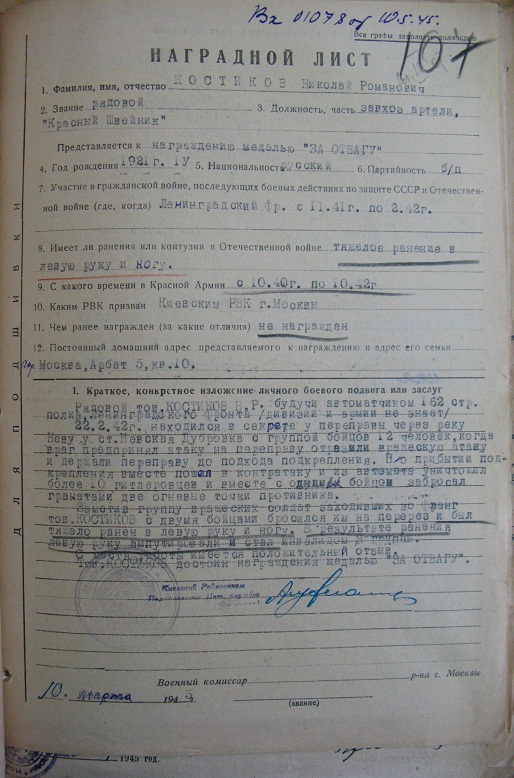 Вх 01078 от 10.5.45.
Все графы заполнять полностью
107
НАГРАДНОЙ ЛИСТ
1. Фамилия, имя, отчество КОСТИКОВ Николай Романович
2. Звание рядовой 3. Должность, часть завхоз артели,
"Красный Швейник"
Представляется к награждению медалью "ЗА ОТВАГУ"
4. Год рождения 1921г. 1У 5. Национальность русский 6. Партийность б/п
7. Участие в гражданской войне, последующих боевых действиях по защите СССР и Отечествен-
ной войне (где, когда) Ленинградский фр. с 11.41г. по 2.42г.
8. Имеет ли ранения или контузии в Отечественной войне тяжелое ранение в
левую руку и ногу.
9. С какого времени в Красной Армии с 10.40г. по 10.42г
10. Каким РВК призван Киевским РВК г.Москвы
11. Чем ранее награжден (за какие отличия) не награжден
12. Постоянный домашний адрес представляемого к награждению и адрес его семьи
гор. Москва, Арбат 5, кв.10.
ДЛЯ ПОДШИВКИ
I. Краткое, конкретное изложение личного боевого подвига или заслуг
Рядовой тов.КОСТИКОВ Н.Р. будучи автоматчиком 162 стр.
полка Ленинградского фронта /дивизии и армии не знает/
22.2.42г. находился в секрете у переправы через реку
Неву у ст.Невская Дубровка с группой бойцов 12 человек, когда
враг предпринял атаку на переправу отразили вражескую атаку
и держали переправу до подхода подкрепления. По прибытии под-
крепления вместе пошел в контратаку и из автомата уничтожил
более 10 гитлеровцев и вместе с одним бойцом забросал
гранатами две огневые точки противника.
Заметив группу вражеских солдат заходивших во фланг
тов.КОСТИКОВ с двумя бойцами бросился им на перерез и был
тяжело ранен в левую руку и ногу. В результате ранения
левую руку ампутировали и стал инвалидом
С места работы имеется положительный отзыв.
Тов.КОСТИКОВ достоин награждения медалью "ЗА ОТВАГУ".
Киевский Райвоенком
Подполковник Инт. службы
Военный комиссар р-на г. Москвы
(звание)
10. марта 194
1945 год.